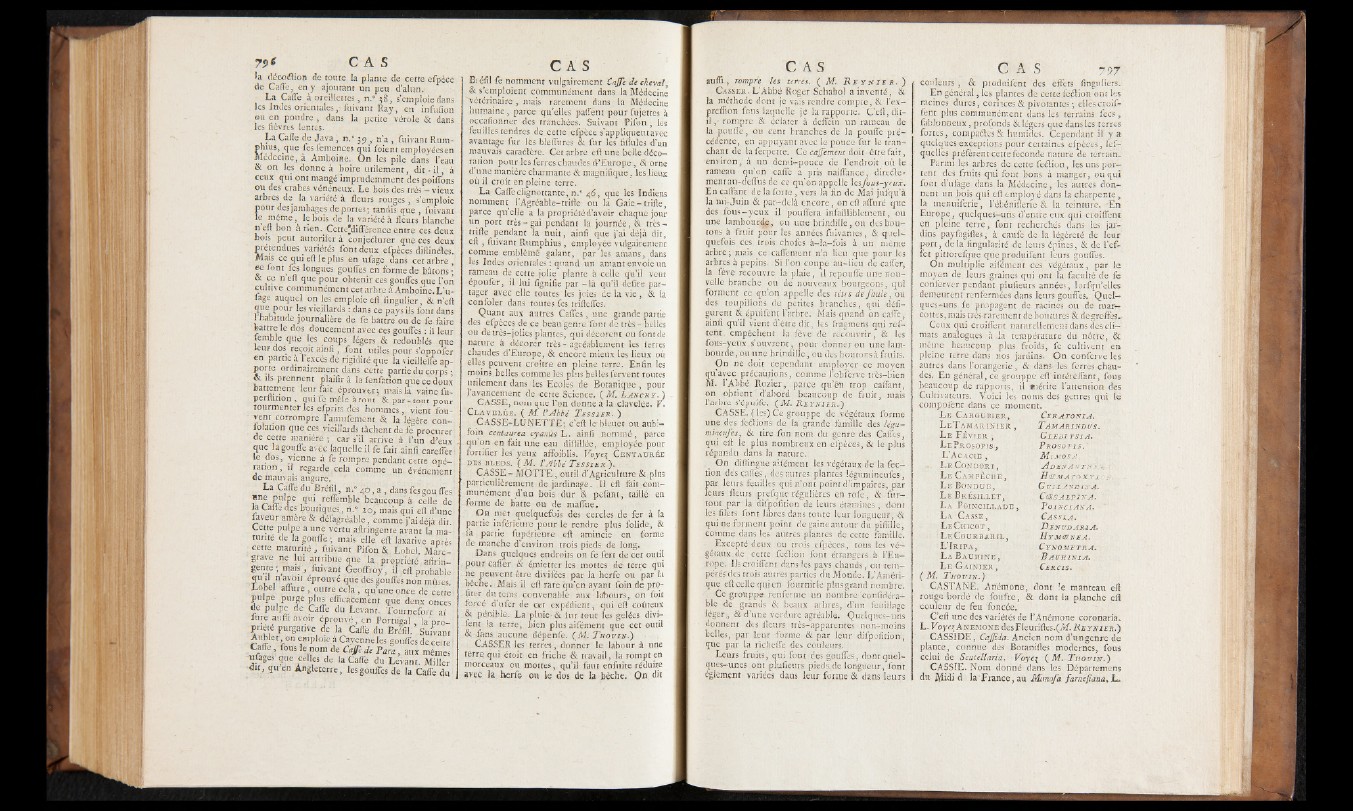 796 C A S
la décoction de toute la plante de cette espèce
de Casse, en y ajoutant un peu d'alun.
La Casse à oreillettes, n.° 38, s'emploie dans
les Indes orientales, suivant Ray, en infusion
ou en poudre, dans la petite vérole & dans
les fièvres lentes.
La Casse de Java, n.° 39, n'a, suivant Rum-
phius, que ses semences qui soient employées en
Médecine, à Amboine. On les pile dans l'eau
& on les donne à boire utilement, dit-il, à
ceux qui ont mangé imprudemment des poissons
ou des crabes vénéneux. Le bois des très-vieux
arbres de la variété à fleurs rouges, s'emploie
pour des jambages de portes; tandis que, suivant
le même, le bois de la variété à fleurs blanche
n'est bon à rien. Cette différence entre ces deux
bois peut autoriser à conjecturer que ces deux
prétendues variétés sont deux espèces distinctes.
Mais ce qui est le plus en usage dans cet arbre,
ce sont ses longues gousses en forme de bâtons;
& ce n'est que pour obtenir ces gousses que l'on
cultive communément cet arbre à Amboine. L'u-
sage auquel on les emploie est singulier, & n'est
que pour les vieillards : dans ce pays ils sont dans
l'habitude journalière de se battre ou de se faire
battre le dos doucement avec ces gousses : il leur
semble que les coups légers & redoublés que
leur dos reçoit ainsi, sont utiles pour s'opposer
en partie à l'excès de rigidité que la vieillesse ap-
porte ordinairement dans cette partie du corps;
& ils prennent plaisir à la sensation que ce doux
battement leur fait éprouver; mais la vaine su-
perstition, qui se mêle à tout & par-tout pour
tourmenter les esprits des hommes, vient sou-
vent corrompre l'amusement & la légère con-
solation que ces vieillards tâchent de se procurer
de cette manière; car s'il arrive à l'un d'eux
que la gousse avec laquelle il se fait ainsi caresser
le dos, vienne à se rompre pendant cette opé-
ration, il regarde cela comme un événement
de mauvais augure.
La Casse du Brésil, n.° 40, a, dans ses gousses
une pulpe qui ressemble beaucoup à celle de
la Casse des Boutiques, n.° 10, mais qui est d'une
saveur amère & désagréable, comme j'ai déja dit.
Cette pulpe a une vertu astringente avant la ma-
turité de la gousse; mais elle est laxative après
cette maturité, suivant Pison & Lobel. Marc-
grave ne lui attribue que la propriété astrin-
gente; mais, suivant Geoffroy, il est probable
qu'il n'avoit éprouvé que des gousses non mûres.
Lobel assure, outre cela, qu'une once de cette
pulpe purge plus efficacement que deux onces
de pulpe de Casse du Levant. Tournefort as-
sure aussi avoir éprouvé, en Portugal, la pro-
priété purgative de la Casse du Brésil. Suivant
Aublet, on emploie à Cayenne les gousses de cette
Casse, sous le nom de Casse de Para, aux mêmes
usages que celles de la Casse du Levant. Miller
dit, qu'en Angleterre, les gousses de la Casse du
C A S
Brésil se nomment vulgairement Casse de cheval,
& s'emploient communément dans la Médecine
vétérinaire, mais rarement dans la Médecine
humaine, parce qu'elles passent pour sujettes à
occasionner des tranchées. Suivant Pison, les
feuilles tendres de cette espèce s'appliquent avec
avantage sur les blessures & sur les fistules d'un
mauvais caractère. Cet arbre est une belle déco-
ration pour les serres chaudes d'Europe, & orne
d'une manière charmante & magnifique, les lieux
où il croît en pleine terre.
La Casse clignotante, n.° 46, que les Indiens
nomment l'Agréable-triste ou la Gaie-triste,
parce qu'elle a la propriété d'avoir chaque jour
un port très-gai pendant la journée, & très-
triste pendant la nuit, ainsi que j'ai déjà dit,
est, suivant Rumphius, employée vulgairement
comme emblême galant, par les amans, dans
les Indes orientales : quand un amant envoie un
rameau de cette jolie plante à celle qu'il veut
épouser, il lui signifie par-là qu'il desire par-
tager avec elle toutes les joies de la vie, & la
consoler dans toutes ses tristesses.
Quant aux autres Casses, une grande partie
des espèces de ce beau genre sont de très-belles
ou de très-jolies plantes, qui décorent ou sont de
nature à décorer très-agréablement les serres
chaudes d'Europe, & encore mieux les lieux où
elles peuvent croître en pleine terre. Enfin les
moins belles comme les plus belles servent toutes
utilement dans les Ecoles de Botanique, pour
l'avancement de cette Science. ( M. LANCRY. )
CASSE, nom que l'on donne à la clavelée. V.
CLAVELÉE. ( M. l'Abbé TESSIER. )
CASSE-LUNETTE; c'est le bleuet ou aubi-
foin centaurea cyanus L. ainsi nommé, parce
qu'on en fait une eau distillée, employée pour
fortifier les yeux affoiblis. Voyez CENTAURÉE
DES BLEDS. ( M. l'Abbé TESSIER. )
CASSE-MOTTE, outil d'Agriculture & plus
particulièrement de jardinage. Il est fait com-
munément d'un bois dur & pesant, taillé en
forme de batte ou de massue.
On met quelquefois des cercles de fer à la
partie inférieure pour le rendre plus solide, &
la partie supérieure est amincie en forme
de manche d'environ trois pieds de long.
Dans quelques endroits on se sert de cet outil
pour casser & émietter les mottes de terre qui
ne peuvent être divisées par la herse ou par la
bêche. Mais il est rare qu'on ayant soin de pro-
fiter du tems convenable aux labours, on soit
forcé d'user de cet expédient, qui est coûteux
& pénible. La pluie & sur-tout les gelées divi-
sent la terre, bien plus aisément que cet outil
& sans aucune dépense. ( M. THOUIN. )
CASSER les terres, donner le labour à une
terre qui étoit en friche & travail, la rompt en
morceaux ou mottes, qu'il faut ensuite réduire
avec la herse ou le dos de la bêche. On dit
C A S
aussi, rompre les terres. ( M. REYNIER. )
CASSER. L'Abbé Roger Schabol a inventé, &
la méthode dont je vais rendre compte, & l'ex-
pression sous laquelle je la rapporte. C'est, dit-
il, rompre & éclater à dessein un rameau de
la pousse, ou cent branches de la pousse pré-
cédente, en appuyant avec le pouce sur le tran-
chant de la serpette. Ce cassement doit être fait,
environ, à un demi-pouce de l'endroit où le
rameau qu'on casse a pris naissance, directe-
ment au-dessus de ce qu'on appelle les sous-yeux.
En cassant de la sorte, vers la fin de Mai jusqu'à
la mi-Juin & par-delà encore, on est assuré que
des sous-yeux il poussera infailliblement, ou
une lambourde, ou une brindille, ou des bou-
tons à fruit pour les années suivantes, & quel-
quefois ces trois choses à-la-fois à un même
arbre; mais ce cassement n'a lieu que pour les
arbres à pepins. Si l'on coupe au-lieu de casser,
la sève recouvre la plaie, il repousse une nou-
velle branche ou de nouveaux bourgeons, qui
forment ce qu'on appelle des têtes de saule, ou
des toupillons de petites branches, qui défi-
gurent & épuisent l'arbre. Mais quand on casse,
ainsi qu'il vient d'être dit, les fragmens qui res-
tent empêchent la sève de recouvrir, & les
sous-yeux s'ouvrent, pour donner ou une lam-
bourde, ou une brindille, ou des boutons à fruits.
On ne doit cependant employer ce moyen
qu'avec précautions, comme l'observe très-bien
M. l'Abbé Rozier, parce qu'en trop cassant,
on obtient d'abord beaucoup de fruit, mais
l'arbre s'épuise. ( M. REYNIER. )
CASSE. (les) Ce grouppe de végétaux forme
une des sections de la grande famille des légu-
mineuses, & tire son nom du genre des Casses,
qui est le plus nombreux en espèces, & le plus
répandu dans la nature.
On distingue aisément les végétaux de la sec-
tion des casses, des autres plantes légumineuses,
par leurs feuilles qui n'ont point d'impaires, par
leurs fleurs presque régulières en rose, & sur-
tout par la disposition de leurs étamines, dont
les filets sont libres dans toute leur longueur, &
qui ne forment point de gaine autour du pistille,
comme dans les autres plantes de cette famille.
Excepté deux ou trois espèces, tous les vé-
gétaux de cette section sont étrangers à l'Eu-
rope. Ils croissent dans les pays chauds, ou tem-
pérés des trois autres parties du Monde. L'Améri-
que est celle qui en fournit le plus grand nombre.
Ce grouppe renferme un nombre considéra-
ble de grands & beaux arbres, d'un feuillage
léger, & d'une verdure agréable. Quelques-uns
donnent des fleurs très-apparentes non-moins
belles, par leur forme & par leur disposition,
que par la richesse des couleurs.
Leurs fruits, qui sont des gousses, dont quel-
ques-unes ont plusieurs pieds de longueur, sont
également variées dans leur forme & dans leurs
C A S 797
couleurs, & produisent des effets singuliers.
En général, les plantes de cette section ont les
racines dures, coriaces & pivotantes; elles crois-
sent plus communément dans les terrains secs,
sablonneux, profonds & légers que dans les terres
fortes, compactes & humides. Cependant il y a
quelques exceptions pour certaines espèces, les-
quelles préfèrent cette seconde nature de terrain.
Parmi les arbres de cette section, les uns por-
tent des fruits qui sont bons à manger, ou qui
sont d'usage dans la Médecine, les autres don-
nent un bois qui est employé dans la charpente,
la menuiserie, l'ébénisterie & la teinture. En
Europe, quelques-uns d'entre eux qui croissent
en pleine terre, sont recherchés dans les jar-
dins paysagistes, à cause de la légéreté de leur
port, de la singularité de leurs épines, & de l'ef-
fet pittoresque que produisent leurs gousses.
On multiplie aisément ces végétaux, par le
moyen de leurs graines qui ont la faculté de se
conserver pendant plusieurs années, lorsqu'elles
demeurent renfermées dans leurs gousses. Quel-
ques-uns se propagent de racines ou de mar-
cottes, mais très-rarement de boutures & de greffes.
Ceux qui croissent naturellement dans des cli-
mats analogues à la température du nôtre, &
même beaucoup plus froids, se cultivent en
pleine terre dans nos jardins. On conserve les
autres dans l'orangerie, & dans les serres chau-
des. En général, ce grouppe est intéressant, sous
beaucoup de rapports, il mérite l'attention des
Cultivateurs. Voici les noms des genres qui le
composent dans ce moment.
LE CAROUBIER, CERATONIA.
LE TAMARINIER, TAMARINDUS.
LE FÉVIER, GLEDITSIA.
LE PROSOPIS, PROSOPIS.
L'ACACIE, MIMOSA.
LE CONDORI, ADENANTHERA.
LE CAMPÊCHE, HÆMATOXYLUM.
LE BONDUC, GUILANDINA.
LE BRÉSILLET, CÆSALPINA.
LA POINCILLADE, POINCIANA.
LA CASSE, CASSIA.
LE CHICOT, DENUDARIA.
LE COURBARIL, HYMENEA.
L'IRIPA, CYNOMETRA.
LA BAUHINE, BAUHINIA.
LE GAINIER, CERCIS.
( M. THOUIN. )
CASTANE. Anémone, dont le manteau est
rouge bordé de soufre, & dont la planche est
couleur de feu foncée.
C'est une des variétés de l'Anémone coronaria.
L. Voyez ANEMONE des Fleuristes. (M. REYNIER.)
CASSIDE, Cassida. Ancien nom d'un genre de
plante, connue des Botanistes modernes, sous
celui de Scutellaria. Voyez ( M. THOUIN. )
CASSIE. Nom donné dans les Départemens
du Midi d la France, au Mimosa farnesiana. L.